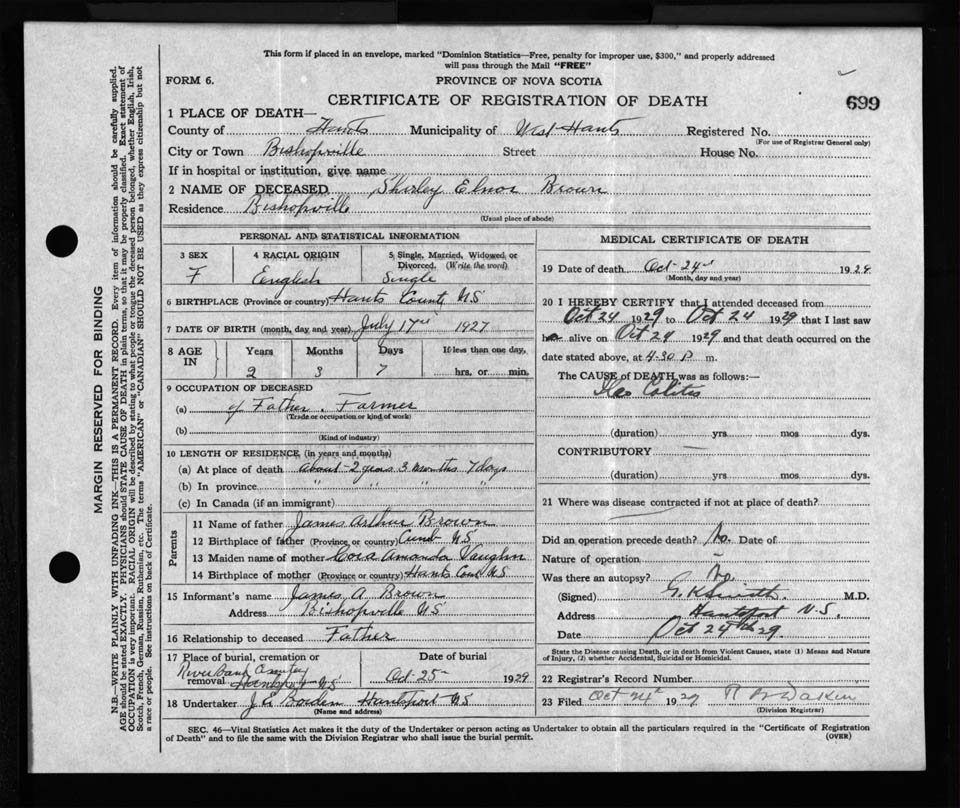 This form if placed in an envelope, marked "Dominion Statistics—Free, penalty for improper use, $300," and properly addressed
will pass through the Mail "FREE"
FORM 6.
PROVINCE OF NOVA SCOTIA
CERTIFICATE OF REGISTRATION OF DEATH
699
1 PLACE OF DEATH—
County of Hants Municipality of West Hants Registered No.
(For use of Registrar General only)
City or Town Bishopville Street House No.
If in hospital or institution, give name
2 NAME OF DECEASED Shirley Elnor Brown
Residence Bishopville
(Usual place of abode)
PERSONAL AND STATISTICAL INFORMATION
3 SEX 4 RACIAL ORIGIN 5 Single, Married, Widowed or Divorced. (Write the word)
F English Single
6 BIRTHPLACE (Province or country) Hants County N S
7 DATE OF BIRTH (month, day, and year) July 17th 1927
8 AGE IN Years Months Days If less than one day,
2 3 7 hrs. or min.
9 OCCUPATION OF DECEASED
(a) of Father. Farmer
(Trade or occupation or kind of work)
(b)
(Kind of industry)
10 LENGTH OF RESIDENCE (in years and months)
(a) At place of death about 2 years 3 months 7 days
(b) In province " " " "
(c) In Canada (if an immigrant)
Parents
11 Name of father James Arthur Brown
12 Birthplace of father (Province or country) Cumb N S
13 Maiden name of mother Cora Amanda Vaughn
14 Birthplace of mother (Province or country) Hants Com N S
15 Informant's name James A. Brown
Address Bishopville N S
16 Relationship to deceased Father
17 Place of burial, cremation or removal Date of burial
Riverbank Cemetery
Hantsport N S Oct 25th 1929
18 Undertaker J E Borden Hantsport N S
(Name and address)
MEDICAL CERTIFICATE OF DEATH
19 Date of death Oct 24th 1929
(Month, day and year)
20 I HEREBY CERTIFY that I attended deceased from
Oct 24 1929 to Oct 24 1929 that I last saw
her alive on Oct 24 1929 and that death occurred on the
date stated above, at 4.30 P m.
The CAUSE of DEATH was as follows:—
Ileo Colitis
(duration) yrs. mos. dys.
CONTRIBUTORY
(duration) yrs. mos. dys.
21 Where was disease contracted if not at place of death?
Did an operation precede death? No. Date of
Nature of operation
Was there an autopsy? No
(Signed) G. K Smith. M.D.
Address Hantsport N.S.
Date Oct 24th 29.
State the Disease causing Death, or in death from Violent Causes, state (1) Means and
Nature of Injury, (2) whether Accidental, Suicidal or Homicidal.
22 Registrar's Record Number
23 Filed Oct 24th 1929 Dakin
(Division Registrar)
SEC. 46—Vital Statistics Act makes it the duty of the Undertaker or person acting as Undertaker to obtain all the particulars required in the "Certificate of Registration
of Death" and to file the same with the Division Registrar who shall issue the burial permit.
(OVER)
MARGIN RESERVED FOR BINDING
N.B.—WRITE PLAINLY WITH UNFADING INK—THIS IS A PERMANENT RECORD. Every item of information should be carefully supplied.
AGE should be stated EXACTLY. PHYSICIANS should STATE CAUSE OF DEATH in plain terms, so that it may be properly classified. Exact statement of
OCCUPATION is very important. RACIAL ORIGIN will be described by stating to what people or tongue the deceased person belonged, whether English, Irish,
Scotch, French, German, Russian, Ruthenian, etc. The terms "AMERICAN" or "CANADIAN" SHOULD NOT BE USED as they express citizenship but not
a race or people. See instructions on back of Certificate.